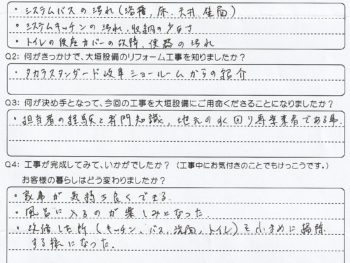 ・システムバスの汚れ(浴槽、床、天井、壁面)
・システムキッチンの汚れ、収納の少なさ
・トイレの便座カバーの故障、便器の汚れ
Q2: 何がきっかけで、大垣設備のリフォーム工事を知りましたか?
・タカラスタンダード岐阜ショールームからの紹介
Q3: 何が決め手となって、今回の工事を大垣設備にご用命くださることになりましたか?
・担当者の経験と専門知識、地元の水回り専業業者である事
Q4: 工事が完成してみて、いかがでしたか?(工事中にお気付きのことでもけっこうです。)
お客様の暮らしはどう変わりましたか?
・家事が気持ち良くできる。
・風呂に入るのが楽しみとなった
・改修した所(キッチン、バス、洗面、トイレ)を小まめに掃除
する様になった。